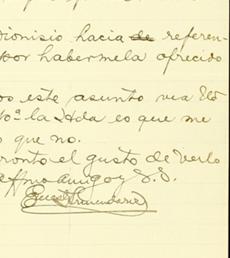 Dionisio hacia de referen-
por habermela ofrecido
este asunto vea Ud
la es que me
que no.
pronto el gusto de verlo
Affmo amigo y S. S.